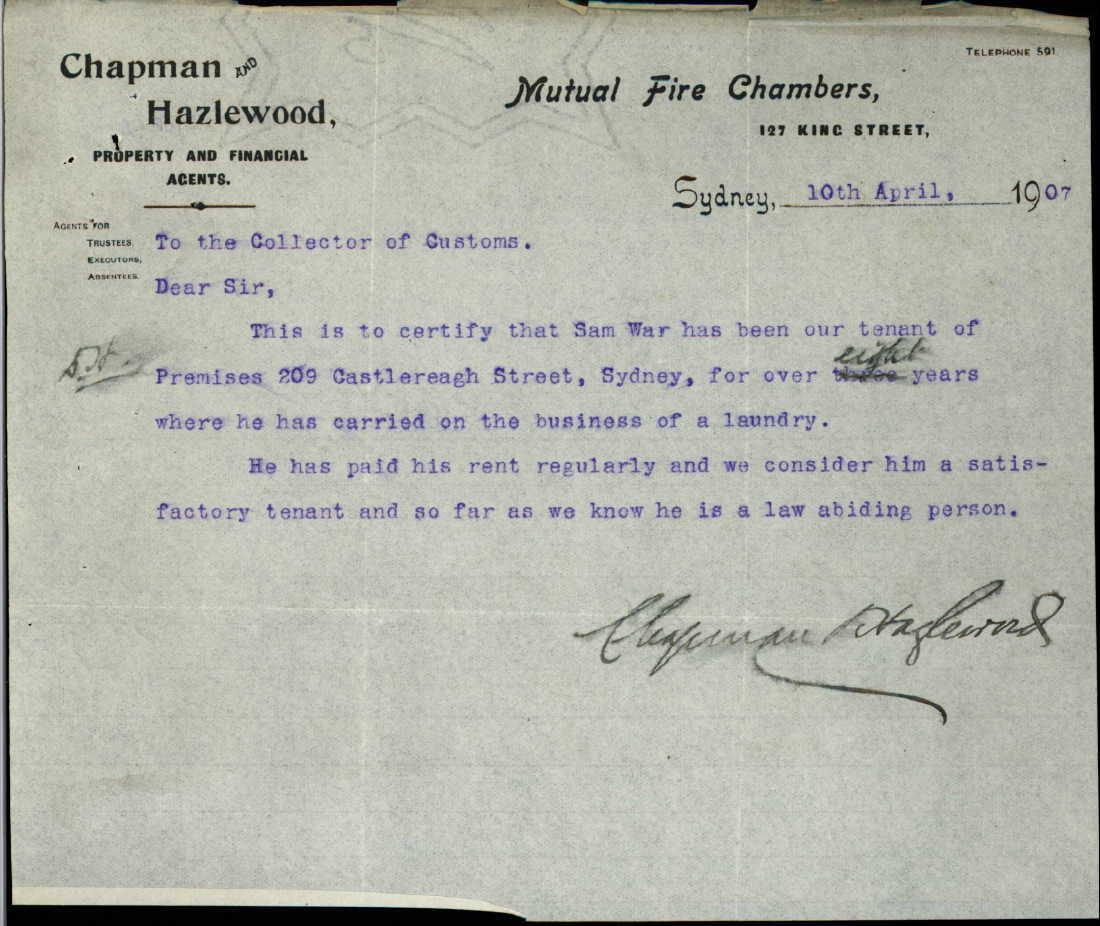 Chapman AND
Hazlewood,
PROPERTY AND FINANCIAL
AGENTS.
TELEPHONE 591
Mutual Fire Chambers,
127 KING STREET,
Sydney, 10th April, 1907
AGENTS FOR
TRUSTEES,
EXECUTORS,
ABSENTEES.
To the Collector of Customs.
Dear Sir,
This is to certify that Sam War has been our tenant of
eight
Premises 209 Castlereagh Street, Sydney, for over three years
where he has carried on the business of a laundry.
He has paid his rent regularly and we consider him a satis-
factory tenant and so far as we know he is a law abiding person.
Chapman & Hazlewood